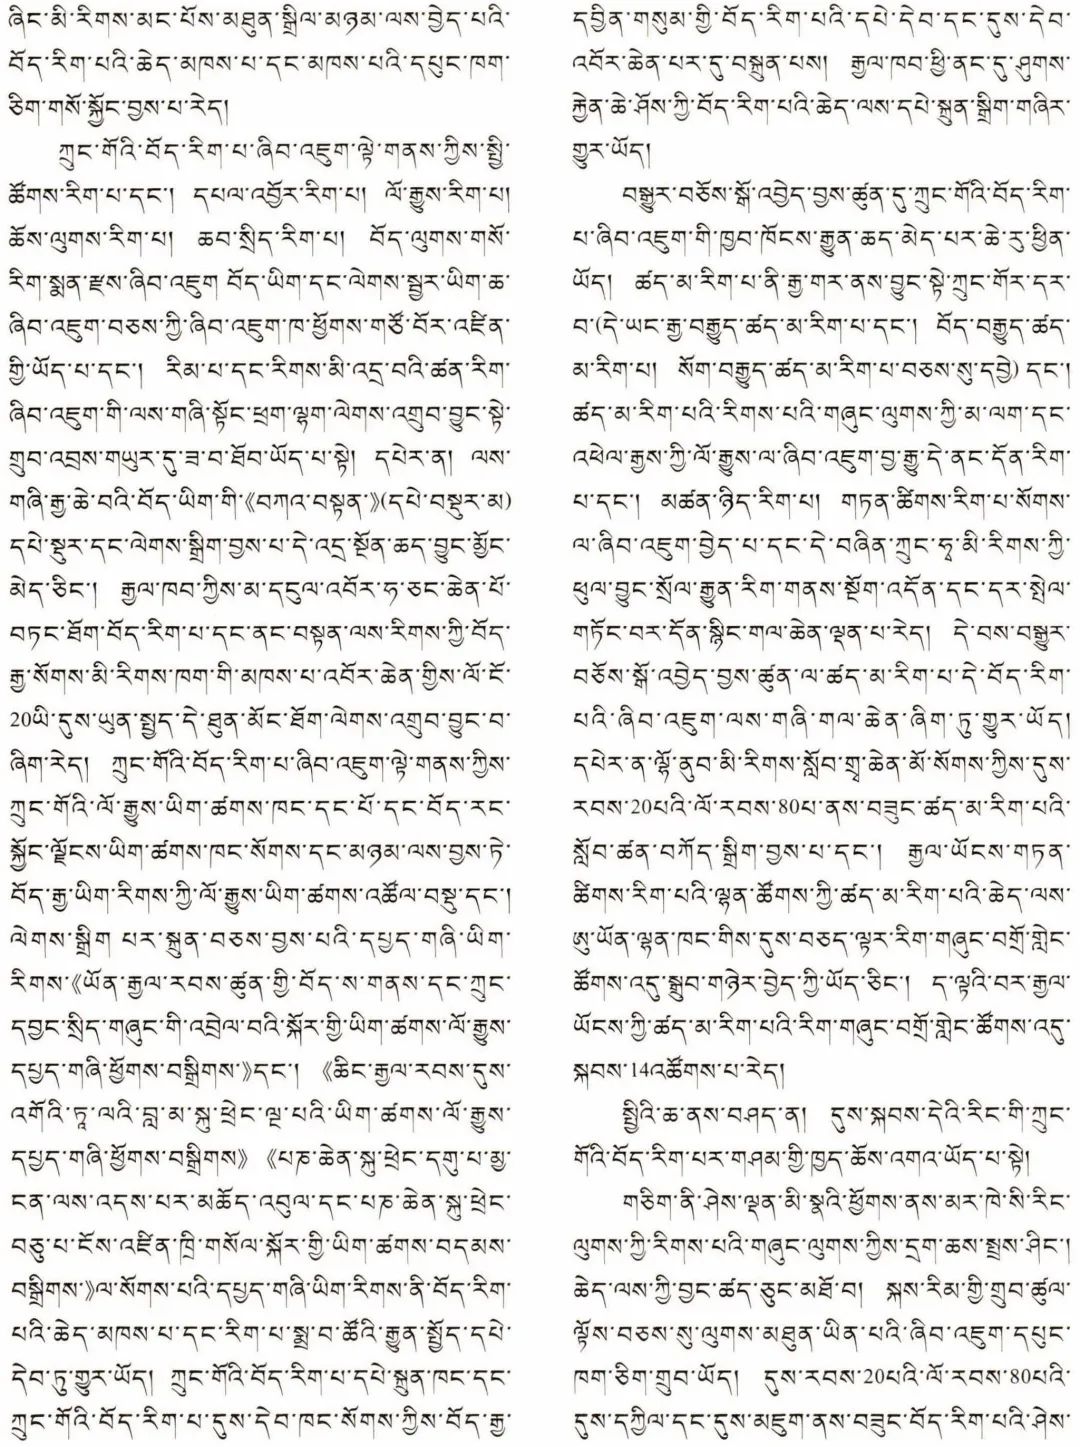 ཞིང་མི་རིགས་མང་པོས་མཐུན་སྒྲིལ་མཉམ་ལས་བྱེད་པའི་
བོད་རིག་པའི་ཆེད་མཁས་པ་དང་མཁས་པའི་དཔུང་ཁག་
ཅིག་གསོ་སྐྱོང་བྱས་པ་རེད།
ཀྲུང་གོའི་བོད་རིག་པ་ཞིབ་འཇུག་ལྟེ་གནས་ཀྱིས་སྤྱི་
ཚོགས་རིག་པ་དང་། དཔལ་འབྱོར་རིག་པ། ལོ་རྒྱུས་རིག་པ།
ཆོས་ལུགས་རིག་པ། ཆབ་སྲིད་རིག་པ། བོད་ལུགས་གསོ་
རིག་སྨན་རྫས་ཞིབ་འཇུག བོད་ཡིག་དང་ལེགས་སྦྱར་ཡིག་ཆ་
ཞིབ་འཇུག་བཅས་ཀྱི་ཞིབ་འཇུག་ཁ་ཕྱོགས་གཙོ་བོར་འཛིན་
གྱི་ཡོད་པ་དང་། རིམ་པ་དང་རིགས་མི་འདྲ་བའི་ཚན་རིག་
ཞིབ་འཇུག་གི་ལས་གཞི་སྟོང་ཕྲག་ལྷག་ལེགས་འགྲུབ་བྱུང་སྟེ་
གྲུབ་འབྲས་གཡུར་དུ་ཟ་བ་ཐོབ་ཡོད་པ་སྟེ། དཔེར་ན། ལས་
གཞི་རྒྱ་ཆེ་བའི་བོད་ཡིག་གི་《བཀའ་བསྟན་》(དཔེ་བསྡུར་མ)
དཔེ་སྡུར་དང་ལེགས་སྒྲིག་བྱས་པ་དེ་འདྲ་སྔོན་ཆད་བྱུང་མྱོང་
མེད་ཅིང་། རྒྱལ་ཁབ་ཀྱིས་མ་དངུལ་འབོར་ཧ་ཅང་ཆེན་པོ་
བཏང་ཐོག་བོད་རིག་པ་དང་ནང་བསྟན་ལས་རིགས་ཀྱི་བོད་
རྒྱ་སོགས་མི་རིགས་ཁག་གི་མཁས་པ་འབོར་ཆེན་གྱིས་ལོ་ངོ་
20ཡི་དུས་ཡུན་སྤྱད་དེ་ཐུན་མོང་ཐོག་ལེགས་འགྲུབ་བྱུང་བ་
ཞིག་རེད། ཀྲུང་གོའི་བོད་རིག་པ་ཞིབ་འཇུག་ལྟེ་གནས་ཀྱིས་
ཀྲུང་གོའི་ལོ་རྒྱུས་ཡིག་ཚགས་ཁང་དང་པོ་དང་བོད་རང་
སྐྱོང་ལྗོངས་ཡིག་ཚགས་ཁང་སོགས་དང་མཉམ་ལས་བྱས་ཏེ་
བོད་རྒྱ་ཡིག་རིགས་ཀྱི་ལོ་རྒྱུས་ཡིག་ཚགས་འཚོལ་བསྡུ་དང་།
ལེགས་སྒྲིག པར་སྐྲུན་བཅས་བྱས་པའི་དཔྱད་གཞི་ཡིག་
རིགས་《ཡོན་རྒྱལ་རབས་ཚུན་གྱི་བོད་ས་གནས་དང་ཀྲུང་
དབྱང་སྲིད་གཞུང་གི་འབྲེལ་བའི་སྐོར་གྱི་ཡིག་ཚགས་ལོ་རྒྱུས་
དཔྱད་གཞི་ཕྱོགས་བསྒྲིགས་》དང་། 《ཆིང་རྒྱལ་རབས་དུས་
འགོའི་ཏཱ་ལའི་བླ་མ་སྐུ་ཕྲེང་ལྔ་པའི་ཡིག་ཚགས་ལོ་རྒྱུས་
དཔྱད་གཞི་ཕྱོགས་བསྒྲིགས》 《པཎ་ཆེན་སྐུ་ཕྲེང་དགུ་པ་མྱ་
ངན་ལས་འདས་པར་མཆོད་འབུལ་དང་པཎ་ཆེན་སྐུ་ཕྲེང་
བཅུ་པ་ངོས་འཛིན་ཁྲི་གསོལ་སྐོར་གྱི་ཡིག་ཚགས་བདམས་
བསྒྲིགས་》ལ་སོགས་པའི་དཔྱད་གཞི་ཡིག་རིགས་ནི་བོད་རིག་
པའི་ཆེད་མཁས་པ་དང་རིག་པ་སྨྲ་བ་ཚོའི་རྒྱུན་སྤྱོད་དཔེ་
དེབ་ཏུ་གྱུར་ཡོད། ཀྲུང་གོའི་བོད་རིག་པ་དཔེ་སྐྲུན་ཁང་དང་
ཀྲུང་གོའི་བོད་རིག་པ་དུས་དེབ་ཁང་སོགས་ཀྱིས་བོད་རྒྱ་
དབྱིན་གསུམ་གྱི་བོད་རིག་པའི་དཔེ་དེབ་དང་དུས་དེབ་
འབོར་ཆེན་པར་དུ་བསྐྲུན་པས། རྒྱལ་ཁབ་ཕྱི་ནང་དུ་ཤུགས་
རྐྱེན་ཆེ་ཤོས་ཀྱི་བོད་རིག་པའི་ཆེད་ལས་དཔེ་སྐྲུན་སྒྲིག་གཞིར་
གྱུར་ཡོད།
བསྒྱུར་བཅོས་སྒོ་འབྱེད་བྱས་ཚུན་དུ་ཀྲུང་གོའི་བོད་རིག་
པ་ཞིབ་འཇུག་གི་ཁྱབ་ཁོངས་རྒྱུན་ཆད་མེད་པར་ཆེ་རུ་ཕྱིན་
ཡོད། ཚད་མ་རིག་པ་ནི་རྒྱ་གར་ནས་བྱུང་སྟེ་ཀྲུང་གོར་དར་
བ་(དེ་ཡང་རྒྱ་བརྒྱུད་ཚད་མ་རིག་པ་དང་། བོད་བརྒྱུད་ཚད་
མ་རིག་པ། སོག་བརྒྱུད་ཚད་མ་རིག་པ་བཅས་སུ་དབྱེ) དང་།
ཚད་མ་རིག་པའི་རིགས་པའི་གཞུང་ལུགས་ཀྱི་མ་ལག་དང་
འཕེལ་རྒྱས་ཀྱི་ལོ་རྒྱུས་ལ་ཞིབ་འཇུག་བྱ་རྒྱུ་དེ་ནང་དོན་རིག་
པ་དང་། མཚན་ཉིད་རིག་པ། གཏན་ཚིགས་རིག་པ་སོགས་
ལ་ཞིབ་འཇུག་བྱེད་པ་དང་དེ་བཞིན་ཀྲུང་ཧྭ་མི་རིགས་ཀྱི་
ཕུལ་བྱུང་སྲོལ་རྒྱུན་རིག་གནས་སྔོག་འདོན་དང་དར་སྤེལ་
གཏོང་བར་དོན་སྙིང་གལ་ཆེན་ལྡན་པ་རེད། དེ་བས་བསྒྱུར་
བཅོས་སྒོ་འབྱེད་བྱས་ཚུན་ལ་ཚད་མ་རིག་པ་དེ་བོད་རིག་
པའི་ཞིབ་འཇུག་ལས་གཞི་གལ་ཆེན་ཞིག་ཏུ་གྱུར་ཡོད།
དཔེར་ན་ལྷོ་ནུབ་མི་རིགས་སློབ་གྲྭ་ཆེན་མོ་སོགས་ཀྱིས་དུས་
རབས་20པའི་ལོ་རབས་80པ་ནས་བཟུང་ཚད་མ་རིག་པའི་
སློབ་ཚན་བཀོད་སྒྲིག་བྱས་པ་དང་། རྒྱལ་ཡོངས་གཏན་
ཚིགས་རིག་པའི་ལྷན་ཚོགས་ཀྱི་ཚད་མ་རིག་པའི་ཆེད་ལས་
ཨུ་ཡོན་ལྷན་ཁང་གིས་དུས་བཅད་ལྟར་རིག་གཞུང་བགྲོ་གླེང་
ཚོགས་འདུ་སྒྲུབ་གཉེར་བྱེད་ཀྱི་ཡོད་ཅིང་། ད་ལྟའི་བར་རྒྱལ་
ཡོངས་ཀྱི་ཚད་མ་རིག་པའི་རིག་གཞུང་བགྲོ་གླེང་ཚོགས་འདུ་
སྐབས་14འཚོགས་པ་རེད།
སྤྱིའི་ཆ་ནས་བཤད་ན། དུས་སྐབས་དེའི་རིང་གི་ཀྲུང་
གོའི་བོད་རིག་པར་གཤམ་གྱི་ཁྱད་ཆོས་འགའ་ཡོད་པ་སྟེ།
གཅིག་ནི་ཤེས་ལྡན་མི་སྣའི་ཕྱོགས་ནས་མར་ཁེ་སི་རིང་
ལུགས་ཀྱི་རིགས་པའི་གཞུང་ལུགས་ཀྱིས་དྲག་ཆས་སྤྲས་ཤིང་།
ཆེད་ལས་ཀྱི་བྱང་ཚད་ཅུང་མཐོ་བ། སྐས་རིམ་གྱི་གྲུབ་ཚུལ་
ལྟོས་བཅས་སུ་ལུགས་མཐུན་ཡིན་པའི་ཞིབ་འཇུག་དཔུང་
ཁག་ཅིག་གྲུབ་ཡོད། དུས་རབས་20པའི་ལོ་རབས་80པའི་
དུས་དཀྱིལ་དང་དུས་མཇུག་ནས་བཟུང་བོད་རིག་པའི་ཤེས་